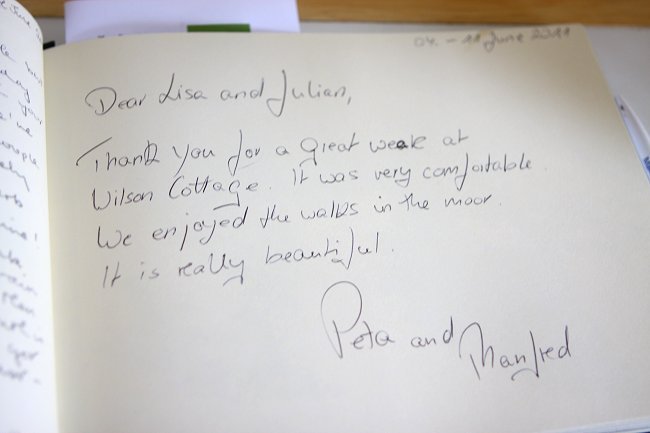 04. - 11 June 2011
Dear Lisa and Julian,
Thank you for a great weak at
Wilson Cottage. It was very comfortable.
We enjoyed the walks in the moor.
It is really beautiful.
Peta and Manfred